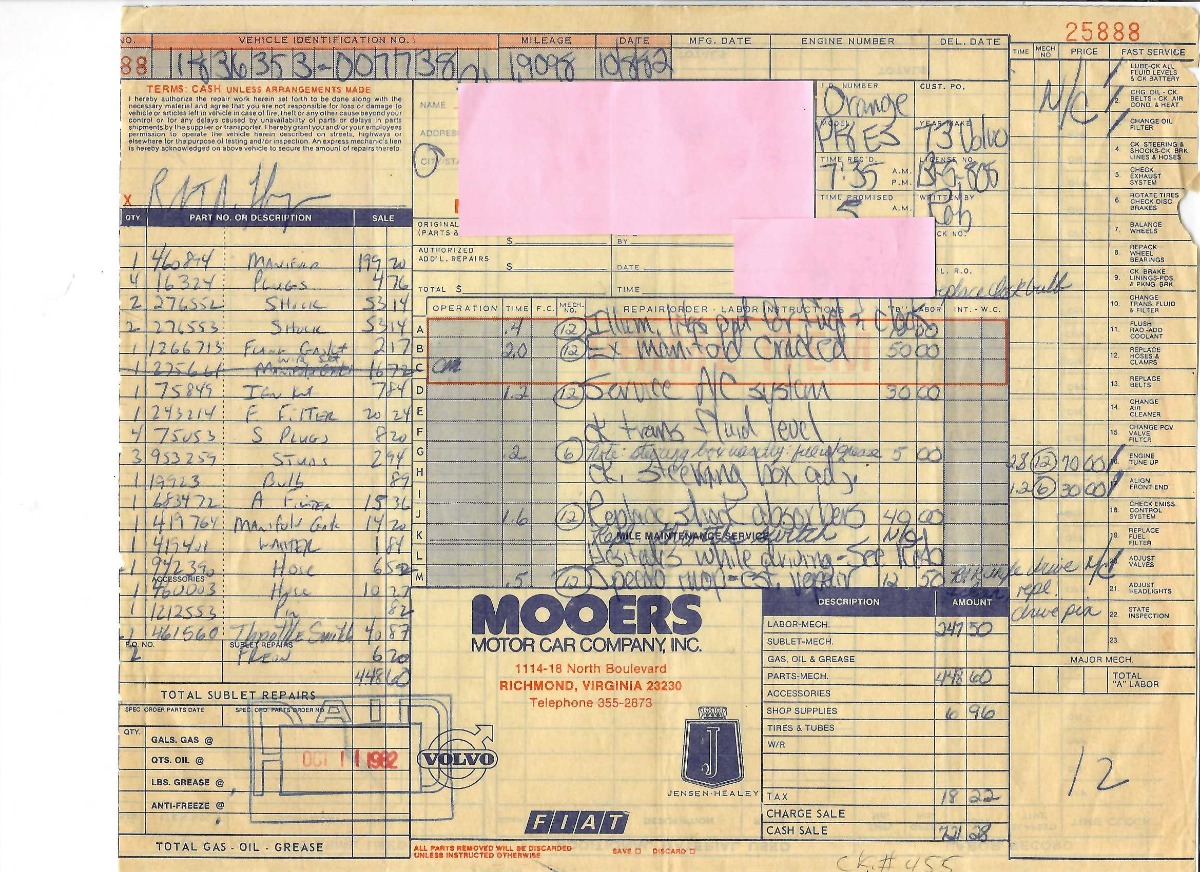 25888
NO. VEHICLE IDENTIFICATION NO. MILEAGE DATE MFG. DATE ENGINE NUMBER DEL. DATE
88 1836353-007738 19098 10/8/82
TERMS: CASH UNLESS ARRANGEMENTS MADE
I hereby authorize the repair work herein set forth to be done along with the
necessary material and agree that you are not responsible for loss or damage to
vehicle or articles left in vehicle in case of fire, theft or any other cause beyond your
control or for any delays caused by unavailability of parts or delays in parts
shipments by the supplier or transporter. I hereby grant you and/or your employees
permission to operate the vehicle herein described on streets, highways or
elsewhere for the purpose of testing and/or inspection. An express mechanic's lien
is hereby acknowledged on above vehicle to secure the amount of repairs thereto.
X
NAME
ADDRESS
CITY/STA
NUMBER CUST. P.O.
Orange
MODEL YEAR MAKE
P1800 ES 73 Volvo
TIME REC'D. LICENSE NO.
7:35 A.M. P.M. BFG-805
TIME PROMISED WRITTEN BY
5 A.M. Rob
CK NO.
ORIGINAL
(PARTS &
$
BY
AUTHORIZED
ADD'L. REPAIRS
$
DATE
TOTAL $ TIME
L. R.O.
QTY. PART NO. OR DESCRIPTION SALE
1 460894 Manifold 199 20
4 16324 Plugs 4 76
2 276552 Shock 53 14
2 276553 Shock 53 14
1 1266713 Flang Gasket 2 17
1 75849 Ign Kit 7 84
1 243214 F Filter 20 24
4 75053 S Plugs 8 20
3 953259 Studs 2 94
1 19923 Bulb 89
1 683472 A Filter 15 36
1 419764 Manifold Gask 14 20
1 419401 Washer 1 84
1 94239 Hose 6 52
ACCESSORIES
1 460003 Hose 10 27
1 1212553 Pin 82
1 461560 Throttle Switch 40 87
P.O. NO. SUBLET REPAIRS
2 Freon 6 20
448 60
TOTAL SUBLET REPAIRS
SPEC. ORDER PARTS DATE SPEC. ORD. PARTS ORDER NO.
QTY.
GALS. GAS @
QTS. OIL @
LBS. GREASE @
ANTI-FREEZE @
TOTAL GAS - OIL - GREASE
PAID
OCT 11 1982
OPERATION TIME F.C. MECH. NO. REPAIR ORDER - LABOR INSTRUCTIONS LABOR INT. - W.C.
A .4 12
B 2.0 12 Ex manifold cracked 50 00
C
D 1.2 12 Service A/C system 30 00
E
F ck trans fluid level
G .2 6 5 00
H ck steering box adj.
I
J 1.6 12 Replace shock absorbers 40 00
K MILE MAINTENANCE SERVICE N/C
L Hesitates while driving - See Rob
M .5 12 12 50
MOOERS
MOTOR CAR COMPANY, INC.
1114-18 North Boulevard
RICHMOND, VIRGINIA 23230
Telephone 355-2873
VOLVO
J
JENSEN-HEALEY
FIAT
ALL PARTS REMOVED WILL BE DISCARDED
UNLESS INSTRUCTED OTHERWISE
SAVE DISCARD
DESCRIPTION AMOUNT
LABOR-MECH. 247 50
SUBLET-MECH.
GAS, OIL & GREASE
PARTS-MECH. 448 60
ACCESSORIES
SHOP SUPPLIES 6 96
TIRES & TUBES
W/R
TAX 18 22
CHARGE SALE
CASH SALE 721 28
CK.# 455
TIME MECH NO. PRICE FAST SERVICE
N/C
LUBE-CK ALL FLUID LEVELS & CK BATTERY
2. CHG. OIL - CK. BELTS - CK. AIR COND. & HEAT
CHANGE OIL FILTER
4. CK. STEERING & SHOCKS-CK. BRK. LINES & HOSES
5. CHECK EXHAUST SYSTEM
6. ROTATE TIRES CHECK DISC BRAKES
7. BALANCE WHEELS
8. REPACK WHEEL BEARINGS
9. CK. BRAKE LININGS-PDS & PKNG. BRK.
10. CHANGE TRANS. FLUID & FILTER
11. FLUSH RAD.-ADD COOLANT
12. REPLACE HOSES & CLAMPS
13. REPLACE BELTS
14. CHANGE AIR CLEANER
15. CHANGE PCV VALVE FILTER
2.8 12 70 00 16. ENGINE TUNE UP
1.2 6 30 00 ALIGN FRONT END
18. CHECK EMISS. CONTROL SYSTEM
19. REPLACE FUEL FILTER
ADJUST VALVES
21. ADJUST HEADLIGHTS
22. STATE INSPECTION
23.
repl.
drive pin
MAJOR MECH.
TOTAL "A" LABOR
12